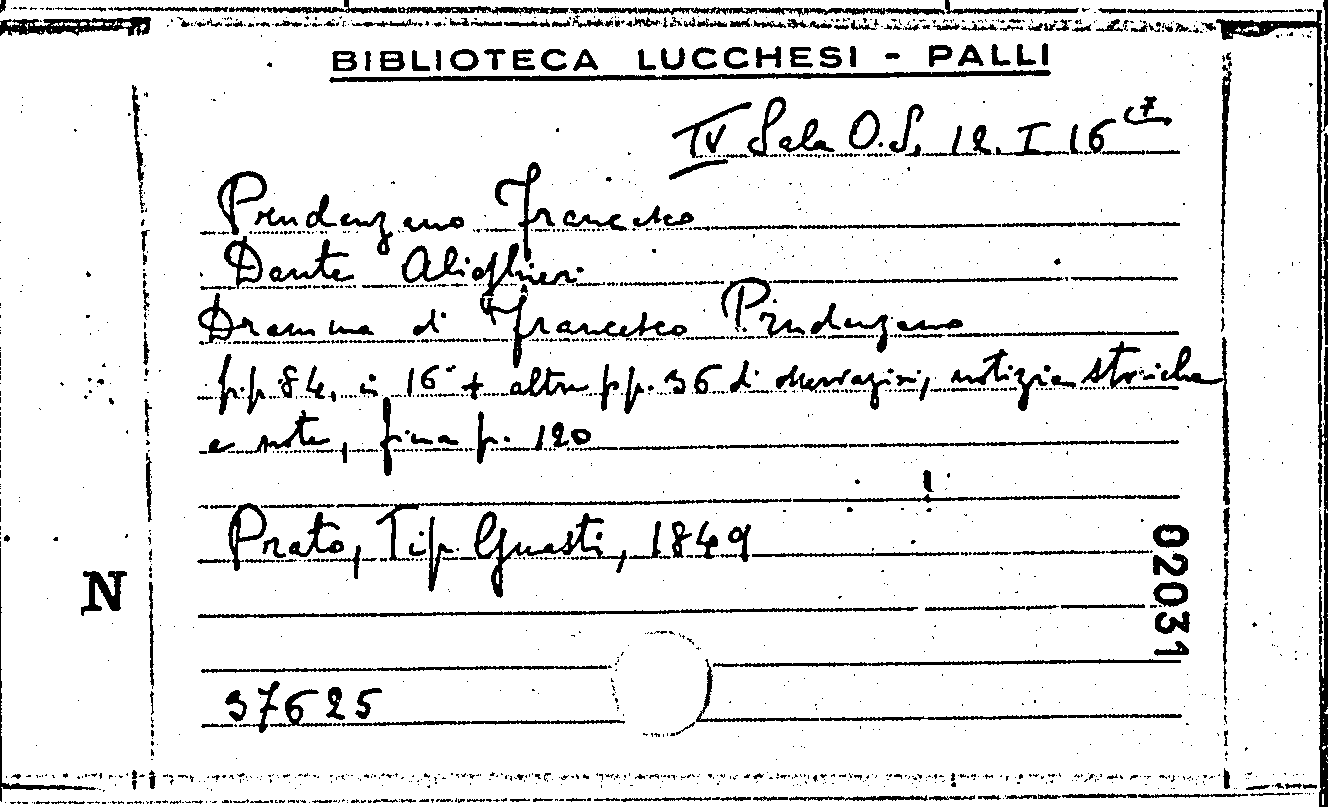 BIBLIOTECA LUCCHESI - PALLI
IV Sala O.S. 12. I 16 (7
Prudenzano Francesco
Dante Alighieri
Dramma di Francesco Prudenzano
pp. 84. in 16° + altre pp. 36 di osservazioni, notizie storiche
e note, fino a p. 120
Prato, Tip Guasti, 1849
02031
N
37625